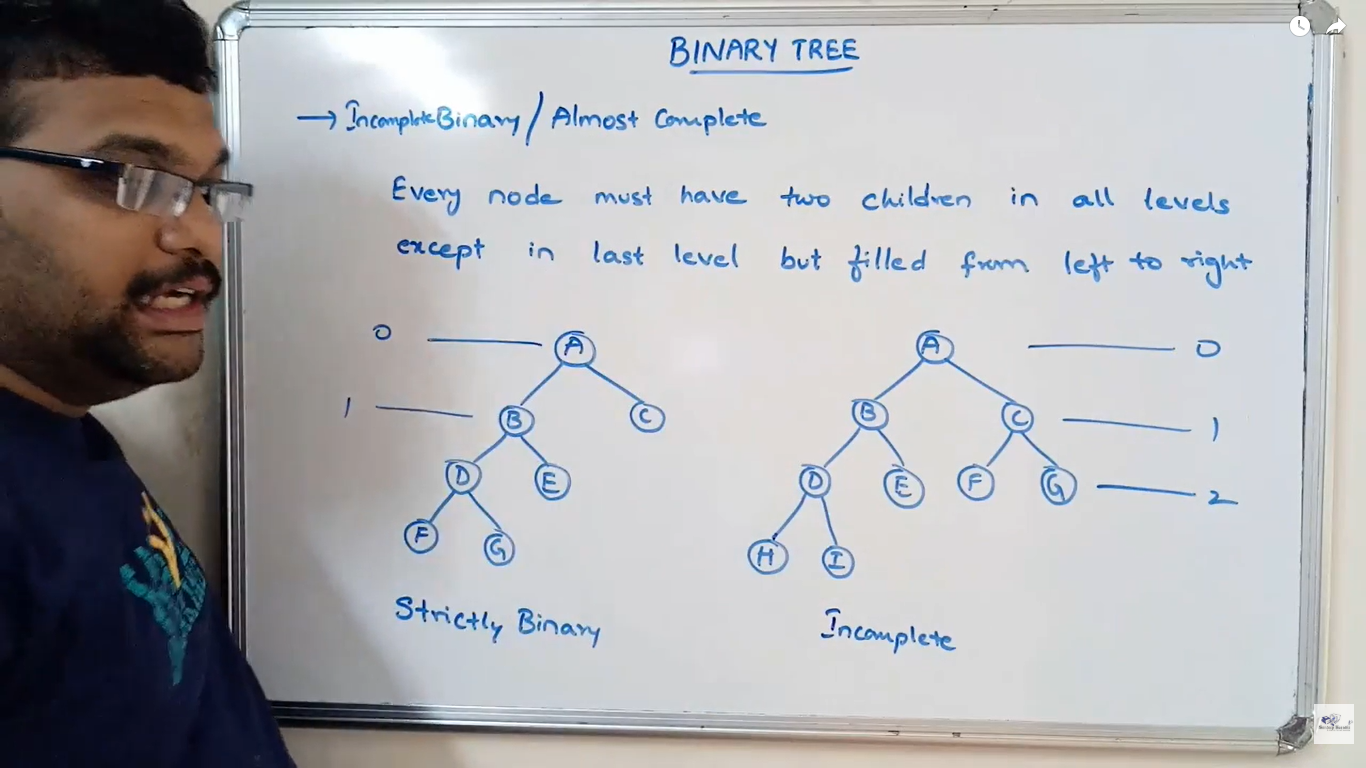 BINARY TREE
→ Incomplete Binary / Almost Complete
Every node must have two children in all levels
except in last level but filled from left to right
0 A
1 B C
D E
F G
Strictly Binary
A 0
B C 1
D E F G 2
H I
Incomplete